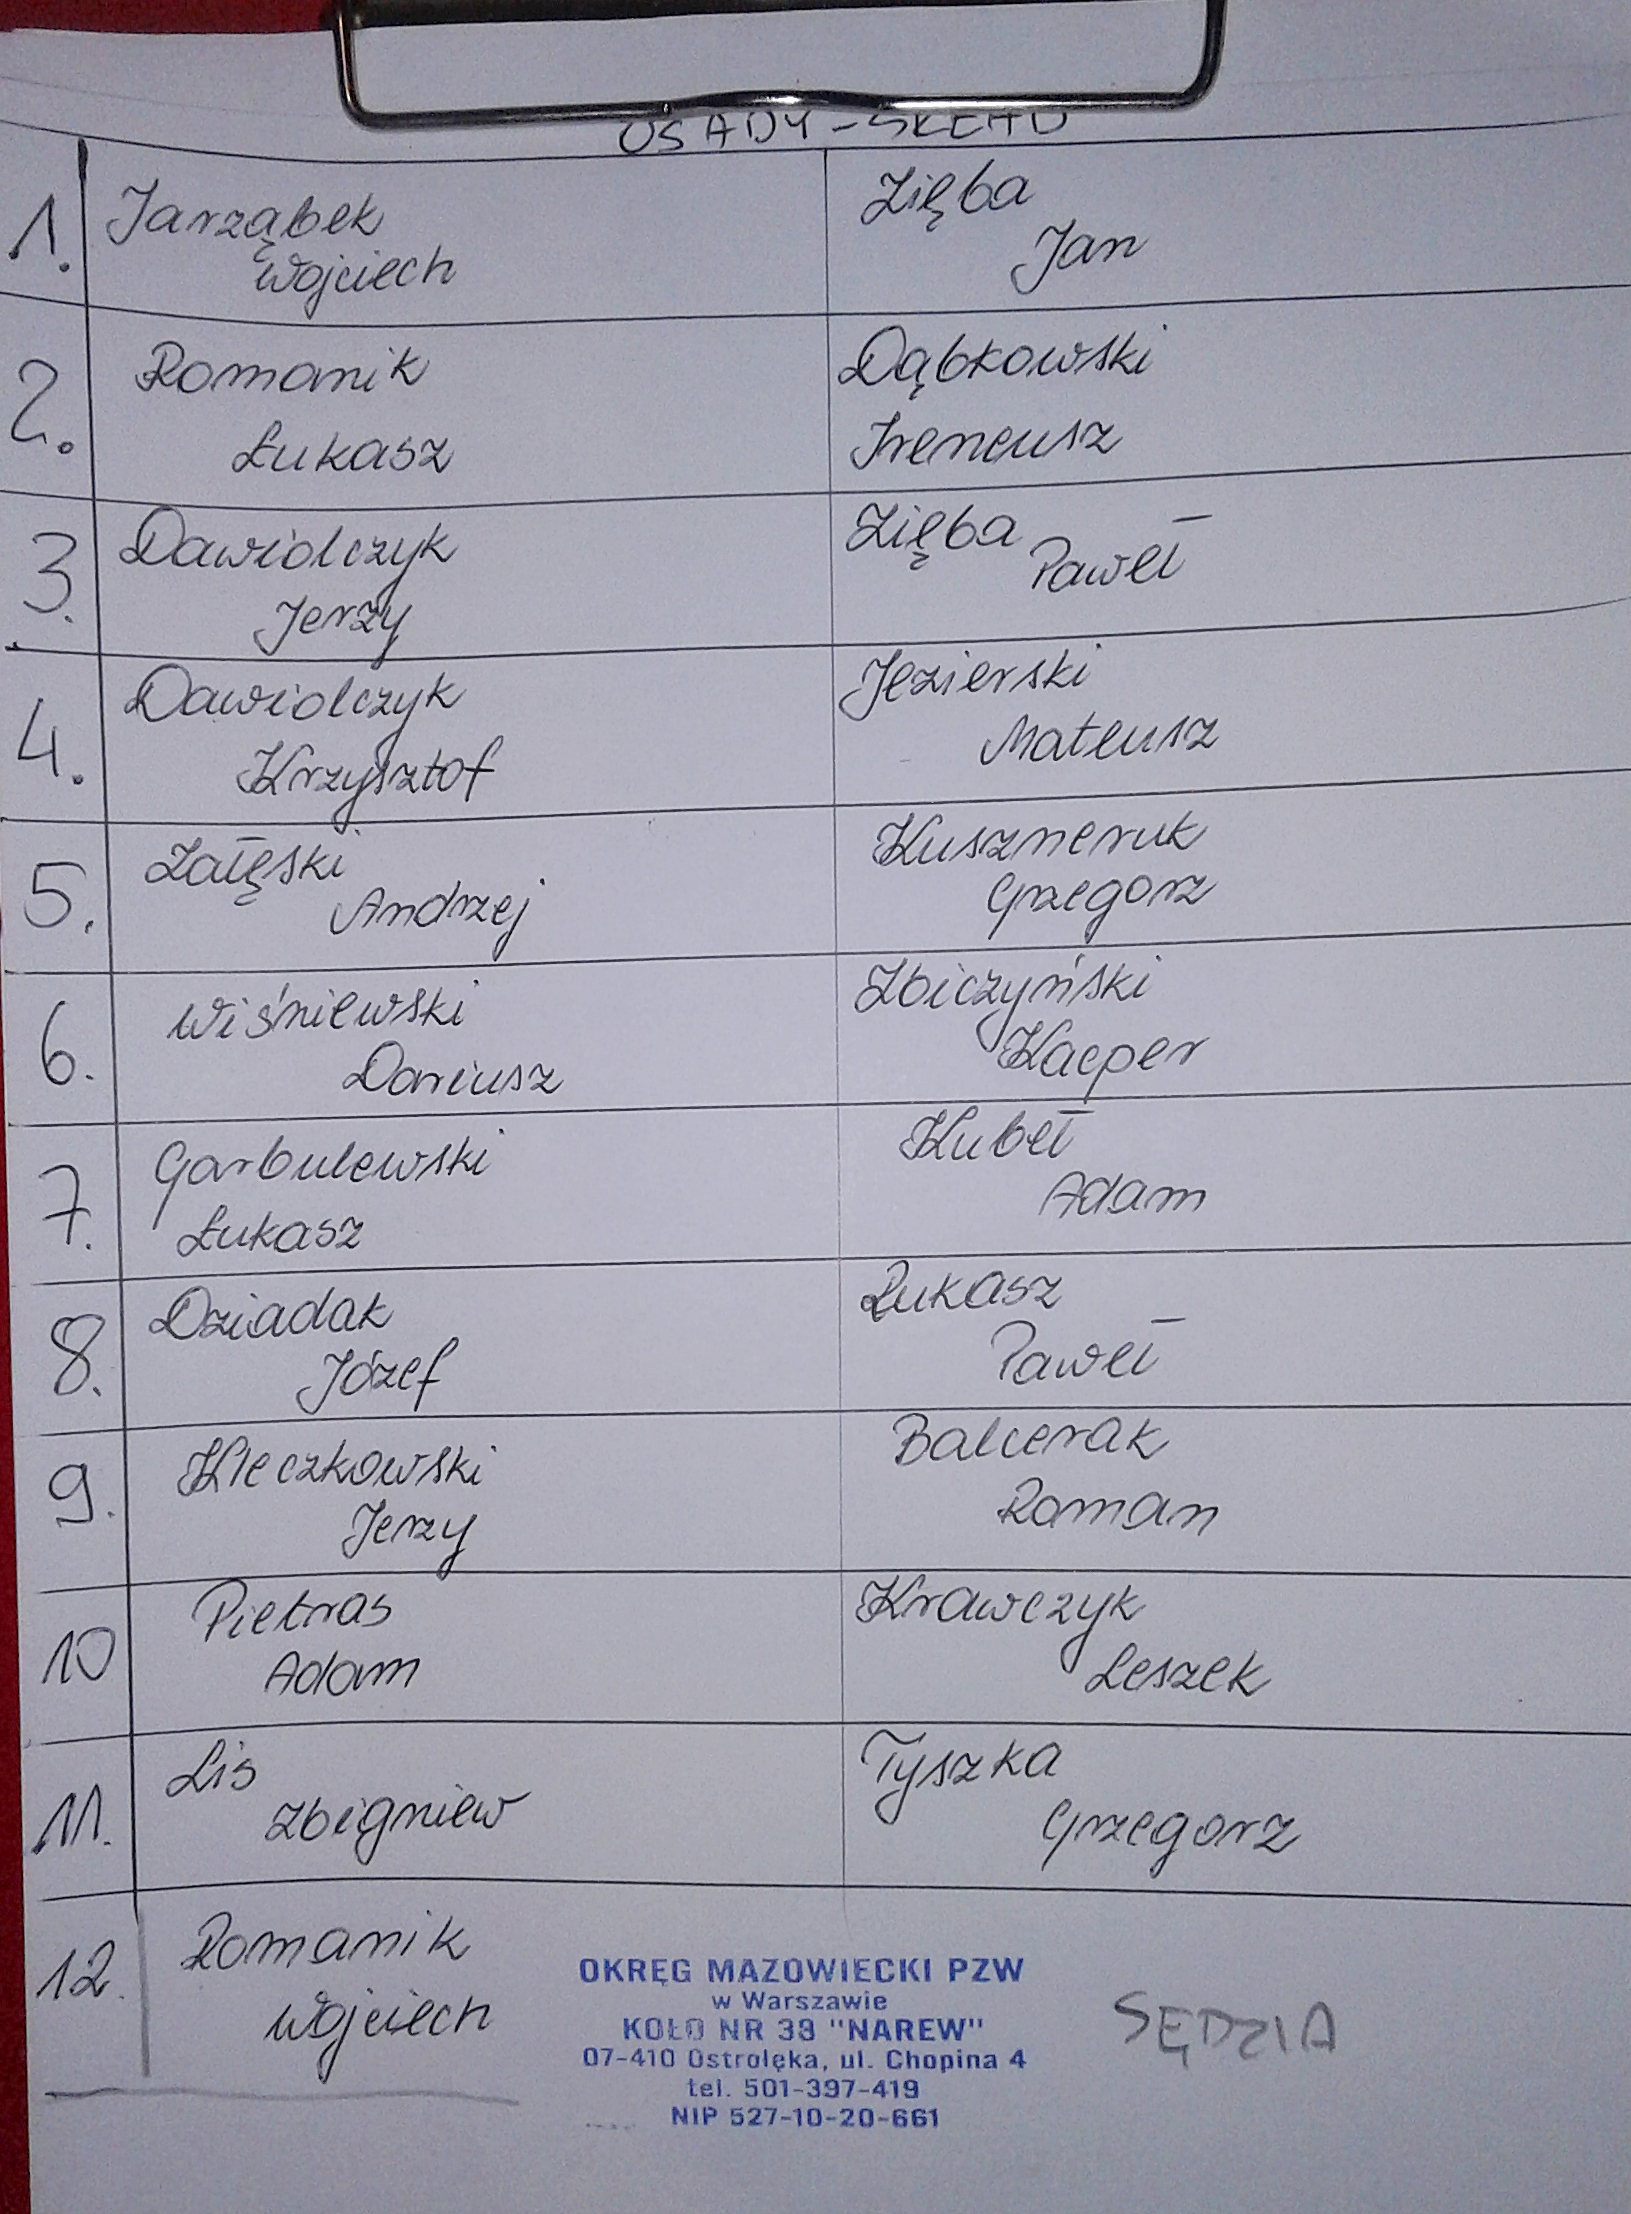 OSADY - SKŁAD
1. Jarząbek
Wojciech
Zięba
Jan
2. Romanik
Łukasz
Dąbkowski
Ireneusz
3. Dawidczyk
Jerzy
Zięba
Paweł
4. Dawidczyk
Krzysztof
Jezierski
Mateusz
5. Załęski
Andrzej
Kuszneruk
Grzegorz
6. Wiśniewski
Dariusz
Zbiczyński
Kacper
7. Garbulewski
Łukasz
Kubeł
Adam
8. Dziadak
Józef
Łukasz
Paweł
9. Kleczkowski
Jerzy
Balcerak
Roman
10 Pietras
Adam
Krawczyk
Leszek
11. Lis
Zbigniew
Tyszka
Grzegorz
12. Romanik
Wojciech
OKRĘG MAZOWIECKI PZW
w Warszawie
KOŁO NR 39 "NAREW"
07-410 Ostrołęka, ul. Chopina 4
tel. 501-397-419
NIP 527-10-20-661
SĘDZIA